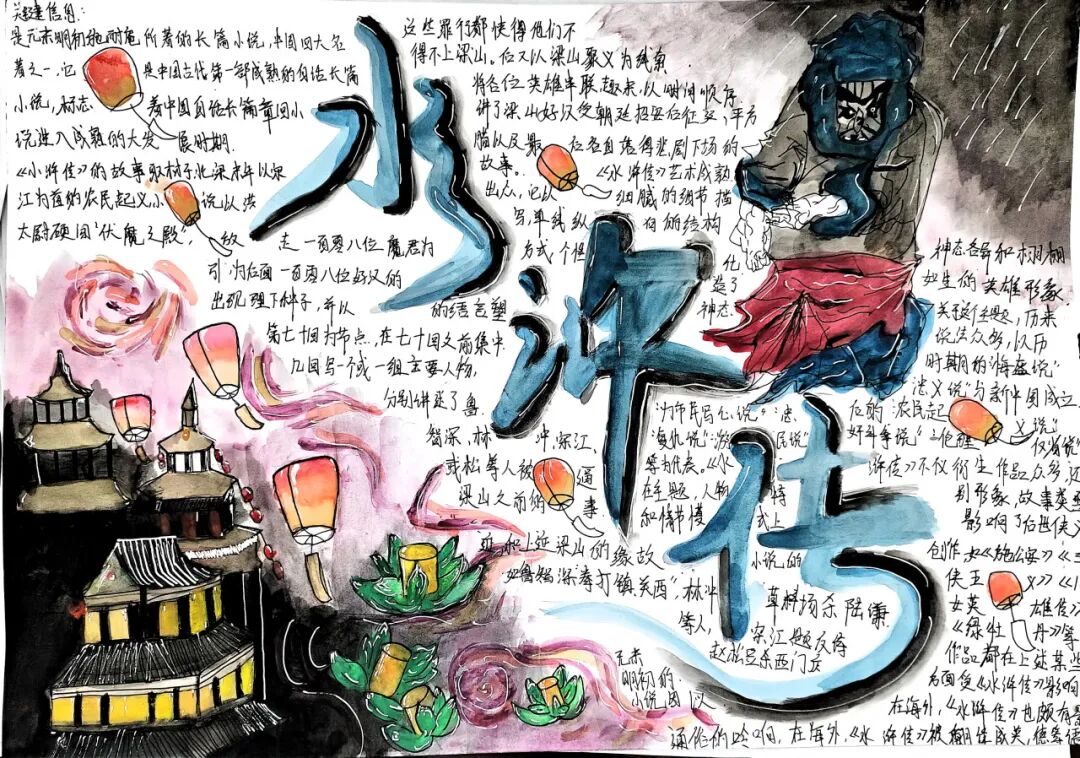 水浒传
关键信息:
是元末明初施耐庵所著的长篇小说,中国四大名
著之一,它是中国古代第一部成熟的白话长篇
小说,标志着中国白话长篇章回小
说进入成熟的大发展时期.
《水浒传》的故事取材于北宋末年以宋
江为首的农民起义,小说以洪
太尉硬闯“伏魔之殿”,放走一百零八位魔君为
引,为后面一百零八位好汉的
出现埋下种子,并以
第七十回为节点,在七十回之前集中
几回写一个或一组主要人物,
分别讲述了鲁
智深、林冲、宋江、
武松等人被逼
梁山之前的事
和上逆梁山的缘故
如鲁智深拳打镇关西”林冲
草料场杀陆谦
等人,
这些罪行都使得他们不
得不上梁山。后又以梁山聚义为线索
将各位英雄串联起来,以时间顺序
讲了梁山好汉受朝廷招安后征辽,平方
腊以及最后各自落得悲剧下场的
故事。《水浒传》艺术成熟
出众,它以细腻的细节描
写,单线纵向的结构
方式个性化
的语言塑造了
神态各异和栩栩
如生的英雄形象
关于这个主题,历来
说法众多,以历
时期的“海盗说”
忠义说”与新中国成立
后的农民起义说”
为市民写心说”
等为代表。《水
在主题,人物
和情节模式上
小说的
浒传》不仅衍生作品众多,还
别形象,故事类型
影响了后世侠义
创作,如《施公案》《三
侠五义》《儿
女英雄传》
《绿牡丹》等
作品都在上述某些
方面受《水浒传》影响
在海外,《水浒传》也颇有
元末
明初的
小说
在海外,《水浒传》被翻译成英,德等语